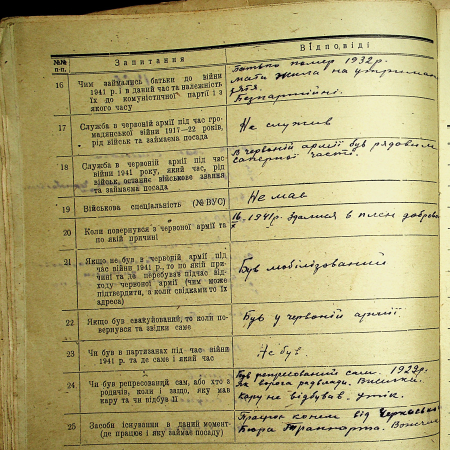 №№ п-п.
Запитання
Відповіді
16
Чим займались батьки до війни
1941 р. і в даний час та належність
їх до комуністичної партії і з
якого часу
Батько помер 1932 р.
мати жила на утриман
зятя.
Безпартійні.
17
Служба в червоній армії під час гро-
мадянської війни 1917—22 років,
рід військ та займаєма посада
Не служив
18
Служба в червоній армії під час
війни 1941 року, який час, рід
військ, останнє військове звання
та займаєма посада
В червоній армії був рядовим
саперної части.
19
Військова спеціальність (№ ВУС)
Не мав
20
Коли повернувся з червоної армії та
по якій причині
1941 р. здалися в плен добров
21
Якщо не був в червоній армії під
час війни 1941 р., то по якій при-
чині та де перебував підчас від-
ходу червоної армії (чим може
підтвердити, а коли свідками то їх
адреса)
Був мобілізований
22
Якщо був евакуйований, то коли по-
вернувся та звідки саме
Був у червоній армії.
23
Чи був в партизанах під час війни
1941 р. та де саме і який час
Не був.
24
Чи був репресований сам, або хто з
родичів, коли і защо, яку мав
кару та чи відбув її
Був репресований сам. 1929р.
Як ворога радвлади.
кару не відбував. утік.
25
Засоби існування в даний момент
(де працює і яку займає посаду)
Працюю конем від Черкаськ
Бюра Транпорта.